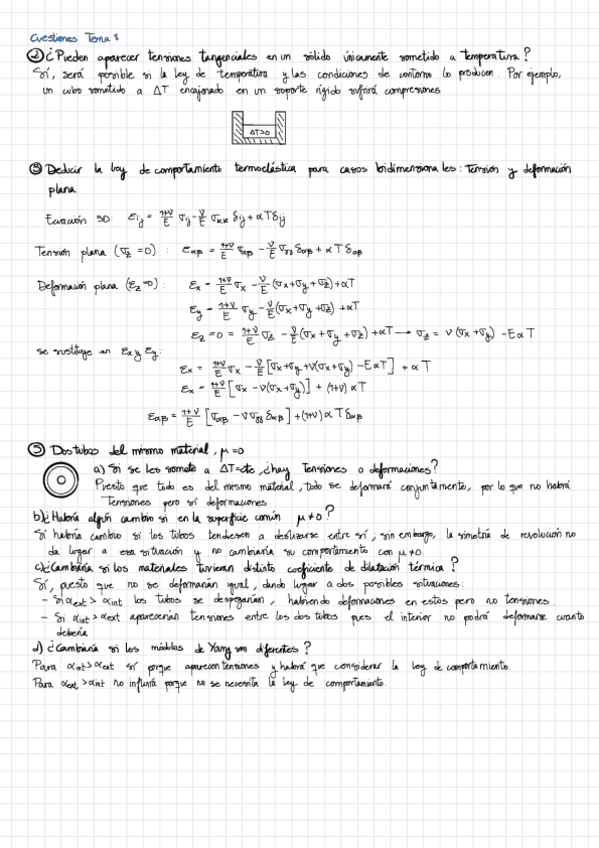 Cuestiones Tema 8
② ¿Pueden aparecer tensiones tangenciales en un sólido únicamente sometido a temperatura?
Sí, será posible si la ley de temperatura y las condiciones de contorno lo producen. Por ejemplo,
un cubo sometido a ΔT encajonado en un soporte rígido sufrirá compresiones
ΔT>0
③ Deducir la ley de comportamiento termoelástica para casos bidimensionales: Tensión y deformación
plana
Ecuación 3D: εij = 1+ν/E σij - ν/E σkk δij + αTδij
Tensión plana (σz = 0): εαβ = 1+ν/E σαβ - ν/E σγγ δαβ + αTδαβ
Deformación plana (εz=0): εx = 1+ν/E σx - ν/E (σx+σy+σz)+αT
εy = 1+ν/E σy - ν/E (σx+σy+σz) +αT
εz = 0 = 1+ν/E σz - ν/E (σx+σy+σz) +αT → σz = ν (σx+σy) - EαT
se sustituye en εx y εy:
εx = 1+ν/E σx - ν/E [σx+σy+ν(σx+σy) - EαT] + αT
εx = 1+ν/E [σx - ν(σx+σy)] + (1+ν) αT
εαβ = 1+ν/E [σαβ - νσγγ δαβ] + (1+ν) αTδαβ
⑤ Dos tubos del mismo material, μ=0
a) Si se les somete a ΔT=cte, ¿hay Tensiones o deformaciones?
Puesto que todo es del mismo material, todo se deformará conjuntamente, por lo que no habrá
Tensiones pero sí deformaciones
b) ¿Habría algún cambio si en la superficie común μ≠0?
Sí habría cambio si los tubos tendiesen a deslizarse entre sí, sin embargo, la simetría de revolución no
da lugar a esa situación y no cambiaría su comportamiento con μ≠0.
c) ¿Cambiaría si los materiales tuvieran distinto coeficiente de dilatación térmica?
Sí, puesto que no se deformarían igual, dando lugar a dos posibles situaciones:
- Si αext > αint los tubos se despegarían, habiendo deformaciones en estos pero no tensiones.
- Si αint > αext aparecerían tensiones entre los dos tubos pues el interior no podrá deformarse cuanto
debería
d) ¿Cambiaría si los módulos de Young son diferentes?
Para αint > αext sí porque aparecen tensiones y habrá que considerar la ley de comportamiento.
Para αext > αint no influirá porque no se necesita la ley de comportamiento.